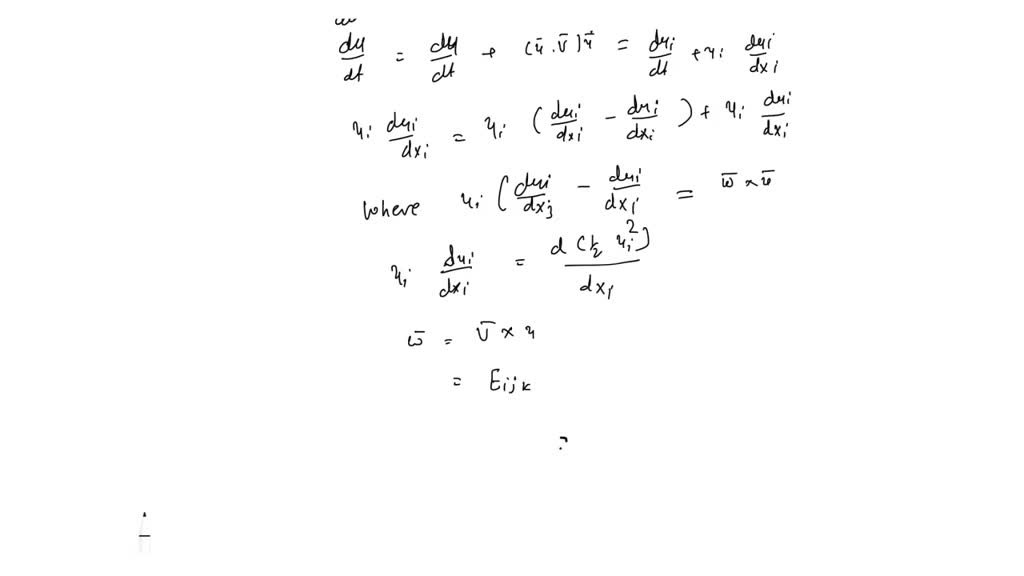 du/dt = du/dt + (ū . ∇̄) ū = dui/dt + ui dui/dxi
ui dui/dxi = ui (dui/dxi - dui/dxi) + ui dui/dxi
where ui (dui/dxj - dui/dxi = w̄ × ū
ui dui/dxi = d(1/2 ui²)/dxi
w̄ = ∇̄ × u
= Eijk